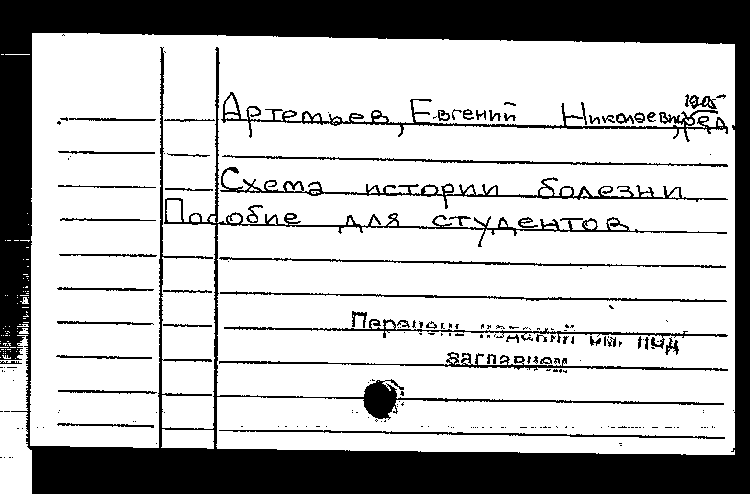 1905
Артемьев, Евгений Николаевич, ред.
Схема истории болезни
Пособие для студентов.
Перечень изданий см. под
заглавием